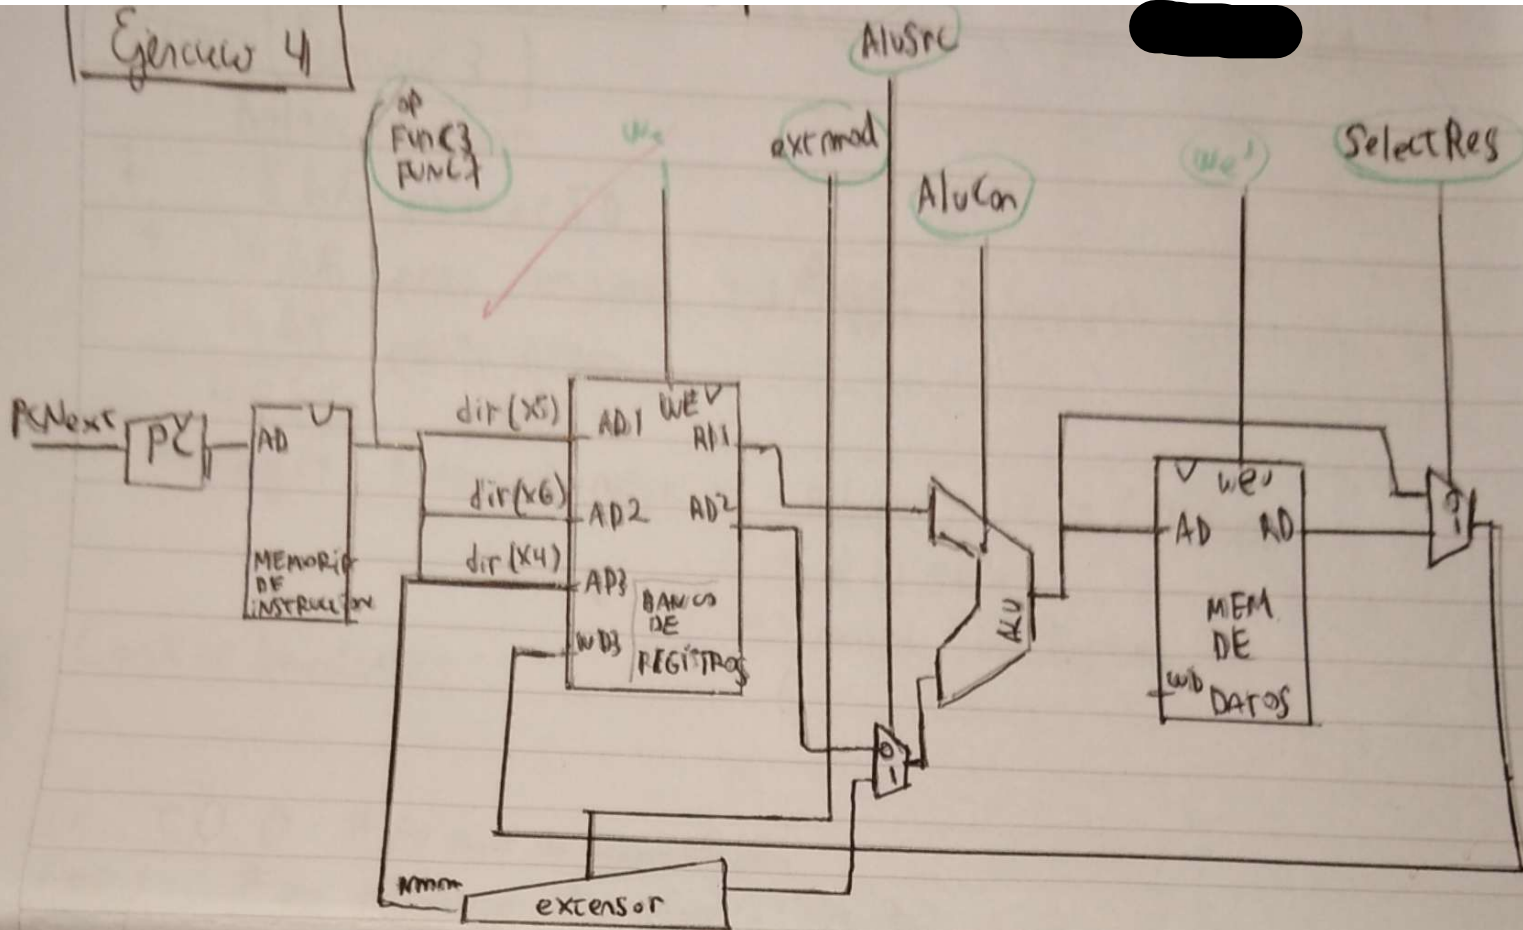 Ejercicio 4
AluSrc
op
Func3
FUNC7
We
extmod
AluCon
We'
SelectRes
PCNext
PC
AD
MEMORIA
DE
INSTRUCCION
dir(x5)
dir(x6)
dir(x4)
AD1
WE
RD1
AD2
AD2
AD3
WD3
BANCO
DE
REGISTROS
ALU
0
1
We'
AD
RD
MEM
DE
DATOS
WD
0
1
extensor